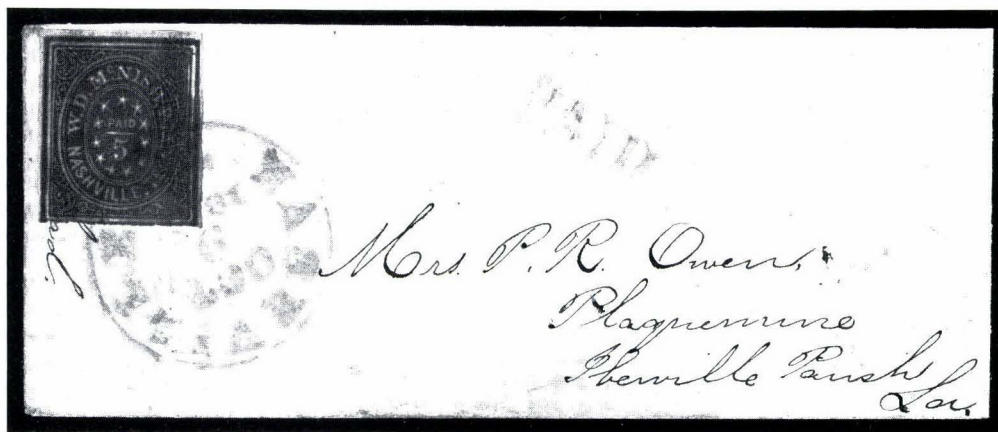 W.D. McNISH
PAID
5
NASHVILLE
PAID
Mrs. P. R. Owen,
Plaquemine
Iberville Parish
Lou,